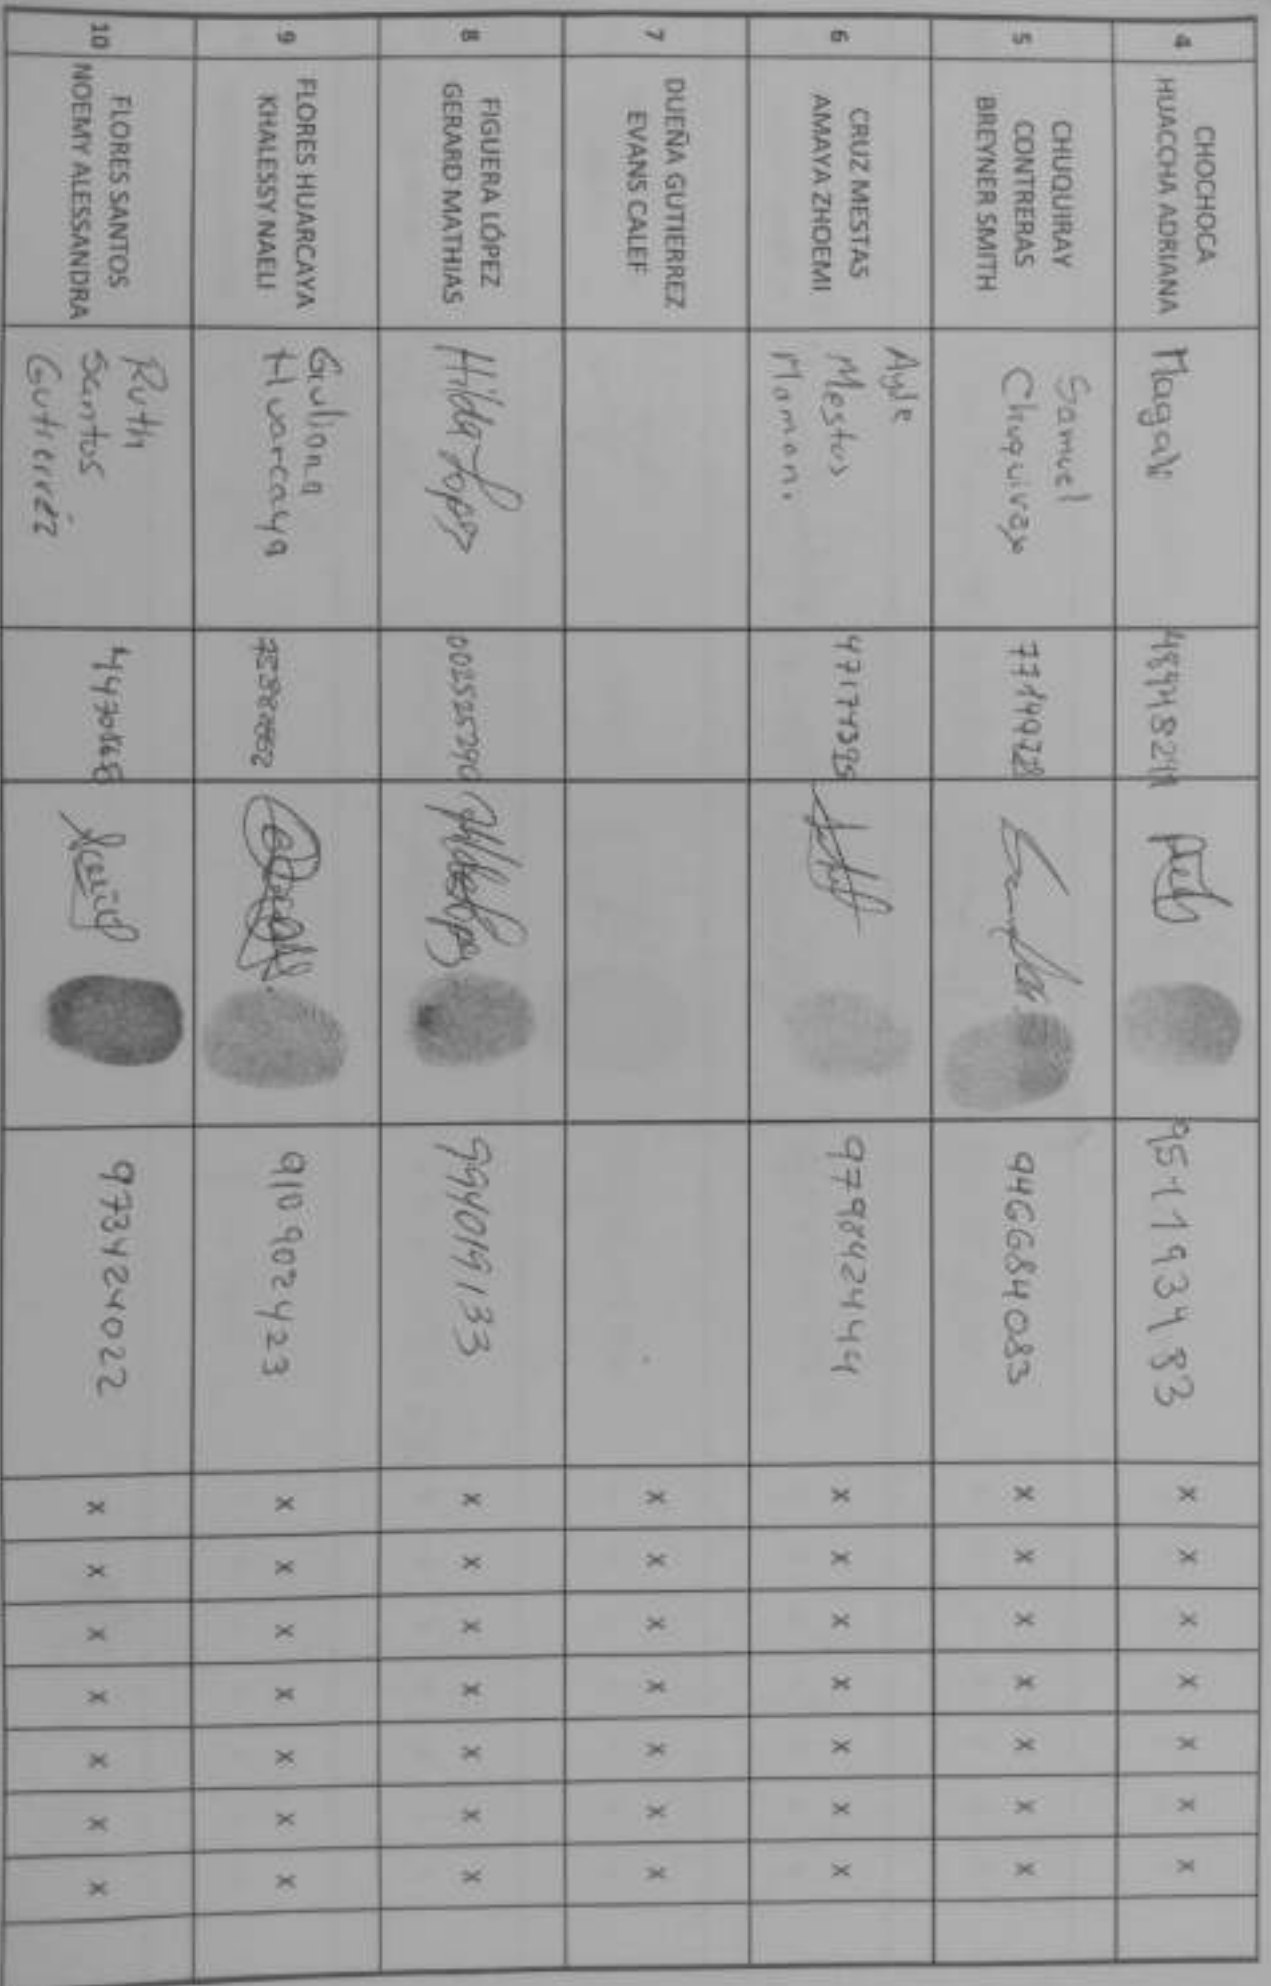 4
CHOCHOCA
HUACCHA ADRIANA
Magali
951193483
x x x x x x x
5
CHUQUIRAY
CONTRERAS
BREYNER SMITH
Samuel
Chuquiray
946684083
x x x x x x x
6
CRUZ MESTAS
AMAYA ZHOEMI
Ayde
Mestas
Mamani
979842444
x x x x x x x
7
DUEÑA GUTIERREZ
EVANS CALEF
x x x x x x x
8
FIGUERA LÓPEZ
GERARD MATHIAS
Hilda Lopez
002525290
994019133
x x x x x x x
9
FLORES HUARCAYA
KHALESSY NAELI
Giuliana
Huarcaya
910902423
x x x x x x x
10
FLORES SANTOS
NOEMY ALESSANDRA
Ruth
Santos
Gutierréz
973424022
x x x x x x x